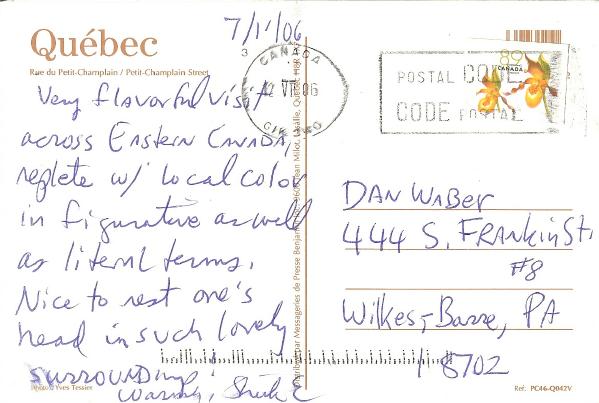 Québec
Rue du Petit-Champlain / Petit-Champlain Street
7/1/06
3
CANADA
VII 06
POSTAL CODE
CODE POSTAL
89
CANADA
Very flavorful visit
across EASTERN CANADA,
replete w/ local color
in figurative as well
as literal terms.
Nice to rest one's
head in such lovely
SURROUNDings.
Warmly,
DAN WABER
444 S. FRANKlin St.
#8
Wilkes-Barre, PA
18702
Photo: Yves Tessier
Distribué par Messageries de Presse Benjamin
Réf.: PC46-Q042V